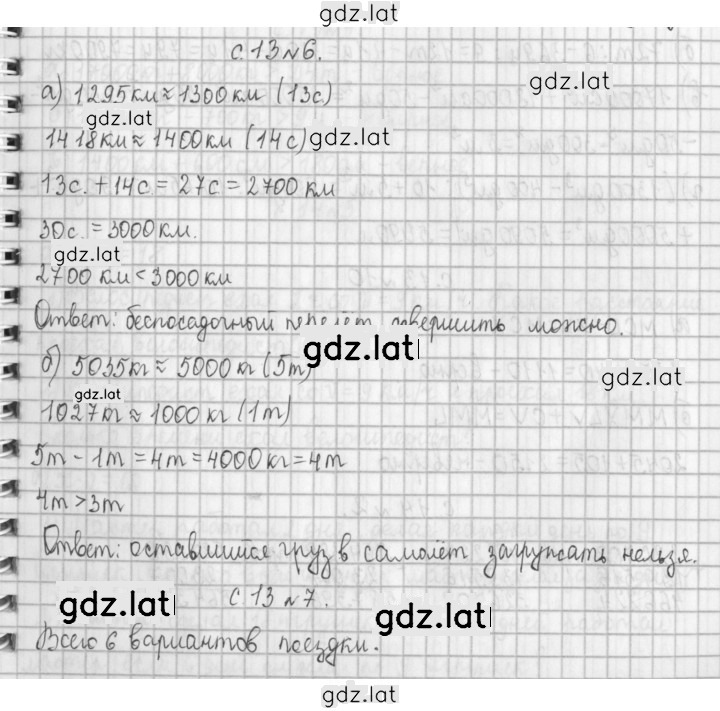 gdz.latl
с. 13 № 6.
gdz.latl
а) 1295 км ≈ 1300 км (13с)
gdz.latl
1418 км ≈ 1400 км (14с) gdz.latl
13с. + 14с = 27с = 2700 км
30с. = 3000 км.
gdz.latl
2700 км < 3000 км
Ответ: беспосадочный перелёт совершить можно.
gdz.latl
б) 5035 кг ≈ 5000 кг (5т)
gdz.latl
gdz.latl
1027 кг ≈ 1000 кг (1т)
5т - 1т = 4т = 4000 кг = 4т
4т > 3т
Ответ: оставшийся груз в самолёт загружать нельзя.
с. 13 № 7.
gdz.latl gdz.latl
Всего 6 вариантов поездки.
gdz.latl